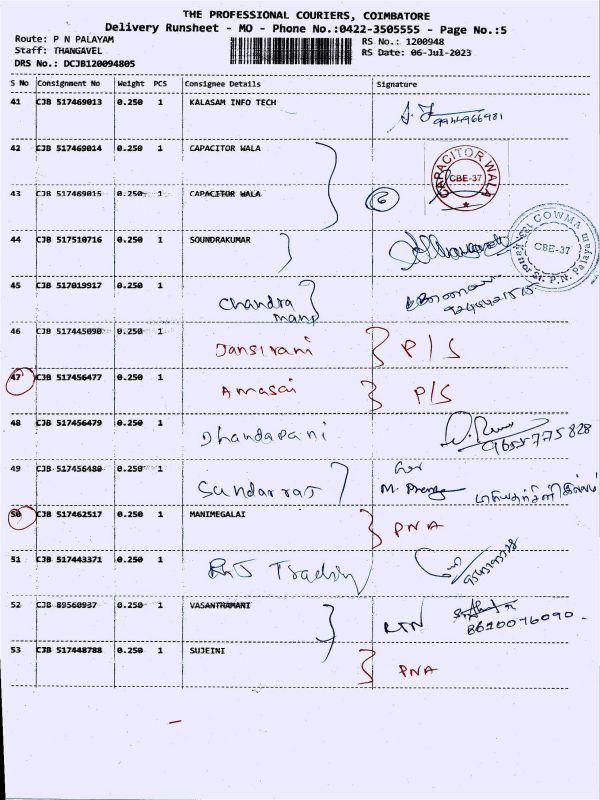 THE PROFESSIONAL COURIERS, COIMBATORE
Delivery Runsheet - MO - Phone No.:0422-3505555 - Page No.:5
Route: P N PALAYAM
RS No.: 1200948
Staff: THANGAVEL
RS Date: 06-Jul-2023
DRS No.: DCJB120094805
S No Consignment No Weight PCS Consignee Details Signature
41 CJB 517469013 0.250 1 KALASAM INFO TECH
9944966981
42 CJB 517469014 0.250 1 CAPACITOR WALA
CAPACITOR WALA
CBE-37
43 CJB 517469015 0.250 1 CAPACITOR WALA 6
44 CJB 517510716 0.250 1 SOUNDRAKUMAR
GOWMA
CBE-37
St. P.N. Palayam
45 CJB 517019917 0.250 1 Chandra
mano
46 CJB 517445090 1 0.250 Jansirani P/S
47 CJB 517456477 0.250 1 Amasai P/S
48 CJB 517456479 0.250 1 Dhandapani 9655775828
49 CJB 517456480 0.250 1 Sundarraj
M. Prema
50 CJB 517462517 0.250 1 MANIMEGALAI PNA
51 CJB 517443371 0.250 1
52 CJB 89560937 0.250 1 VASANTHAMANI RTN
53 CJB 517448788 0.250 1 SUJEINI PNA